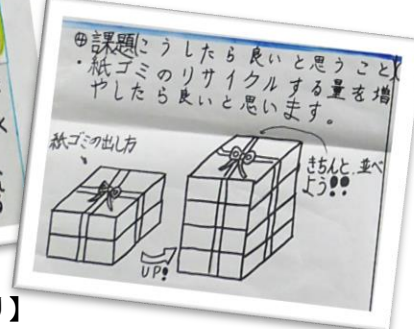 ④課題こうしたら良いと思うこと
・紙ゴミのリサイクルする量を増
やしたら良いと思います。
紙ゴミの出し方
きちんと、並べ
よう!!
UP!
】